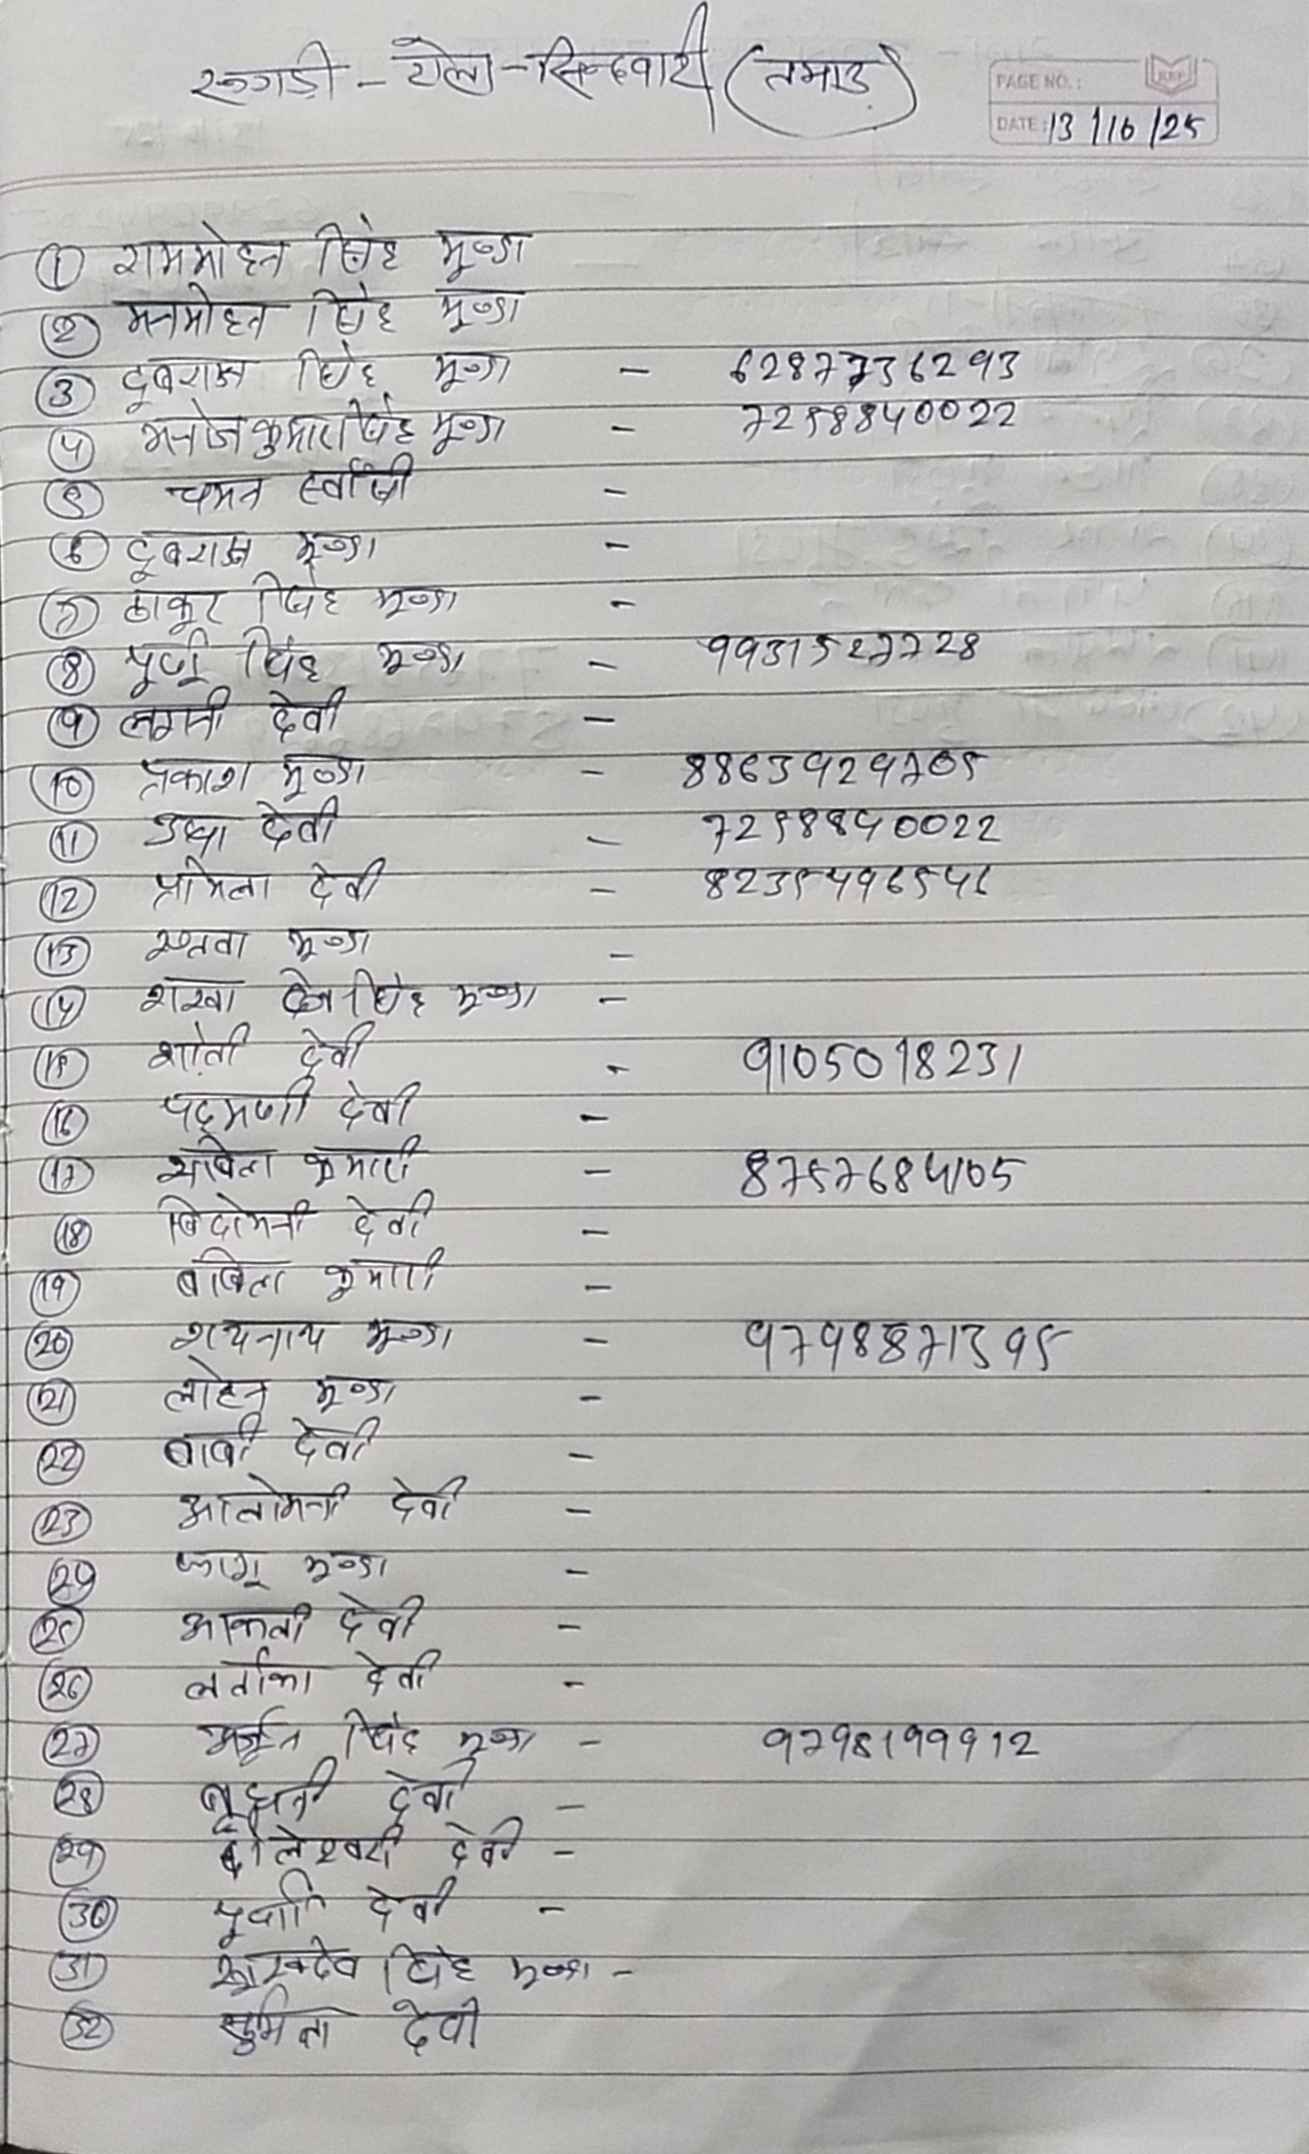 रूगड़ी - टोला - सिन्दवारी (तमाड़)
PAGE NO.:
DATE: 13/10/25
① राममोहन सिंह मुण्डा
② मनमोहन सिंह मुण्डा
③ दूबराज सिंह मुण्डा - 6287736293
④ मनोज कुमार सिंह मुण्डा - 7258840022
⑤ चमन स्वांसी -
⑥ दूबराज मुण्डा -
⑦ ठाकुर सिंह मुण्डा -
⑧ पूर्ण सिंह मुण्डा - 9931527728
⑨ लगनी देवी -
⑩ प्रकाश मुण्डा - 8863929705
⑪ उषा देवी - 7258840022
⑫ प्रमिला देवी - 8235496546
⑬ मुण्डा -
⑭ सिंह मुण्डा -
⑮ शांती देवी - 9105018231
⑯ पद्मणी देवी -
⑰ सबिता कुमारी - 8757684105
⑱ देवी -
⑲ बबिता कुमारी -
⑳ मुण्डा - 9798871395
㉑ मुण्डा -
㉒ देवी -
㉓ देवी -
㉔ फागू मुण्डा -
㉕ देवी -
㉖ लतिका देवी -
㉗ अर्जुन सिंह मुण्डा - 9798199912
㉘ बुधनी देवी -
㉙ देवी -
㉚ देवी -
㉛ सुखदेव सिंह मुण्डा -
㉜ सुमिता देवी